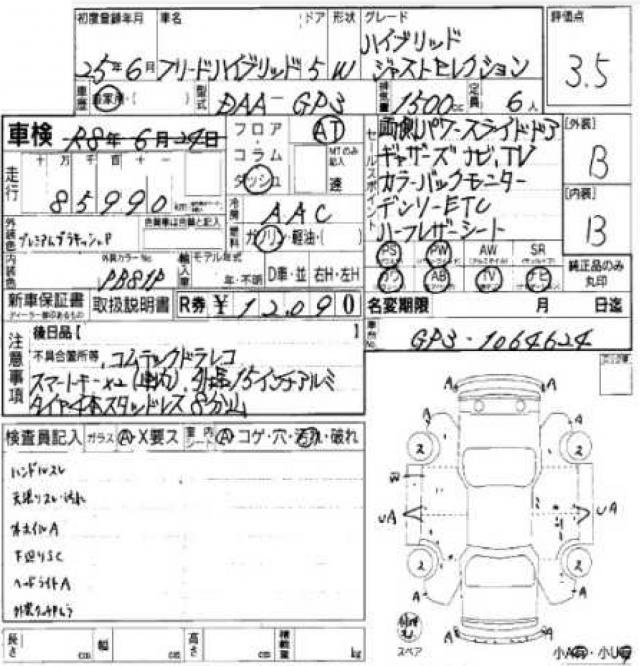 初度登録年月 車名 ドア 形状 グレード 評価点
25年6月 フリードハイブリッド 5 W ハイブリッド ジャストセレクション
3.5
車歴 自家用・( ) 型式 DAA-GP3 排気量 1500cc 定員 6人
車検 R8年6月24日
フロア・コラム ダッシュ AT MTのみ記入 速
セールスポイント
両側パワースライドドア
ギャザーズナビ、TV
カラーバックモニター
デンソーETC
ハーフレザーシート
[外装] B
[内装] B
走行 十 万 千 百 十 一
85990
冷房 AAC
燃料 ガソリン・軽油・( )
外装色
色替車は色替と記入
内装色 外装カラーNo. PB81P
輸入車 モデル年式 年・不明 D車・並 右H・左H
PS PW AW SR
AB TV
純正品のみ丸印
新車保証書 取扱説明書 R券 ¥12,090
ディーラー印あるもの
名変期限 月 日迄
車台No. GP3-1064624
注意事項
後日品【 】
不具合箇所等、コムテックドラレコ
スマートキーx2(車内)、
15インチアルミ
タイヤ4本スタッドレス 8分山
検査員記入 ガラス A・X要ス 車内シート A・コゲ・穴・汚れ・破れ
ハンドルスレ
ホイルA
下廻りSC
ヘッドライトA
A A
A A
2 2
UA UA
2 2
A A
A A
スペア
長さ cm 幅 cm 高さ cm 積載量 kg